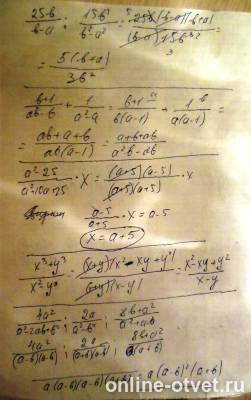 25b/(b-a) : 15b³/(b²-a²) = 25b(b-a)(b+a)/((b-a)15b³) =
= 5(b+a)/3b²
(b+1)/(ab-b) + 1/(a²-a) = (b+1)/(b(a-1)) + 1/(a(a-1)) =
= (ab+a+b)/(ab(a-1)) = (a+b+ab)/(a²b-ab)
(a²-25)/(a²+10a+25) · x = (a+5)(a-5)/((a+5)(a+5)) · x
(a-5)/(a+5) · x = a-5
x = a+5
(x³+y³)/(x²-y²) = (x+y)(x²-xy+y²)/((x+y)(x-y)) = (x²-xy+y²)/(x-y)
4a²/(a²-2ab+b²) ; 2a/(a²-b²) ; (8b+a²)/(a²+ab)
4a²/((a-b)(a-b)) ; 2a/((a-b)(a+b)) ; (8b+a²)/(a(a+b))
online-otvet.ru